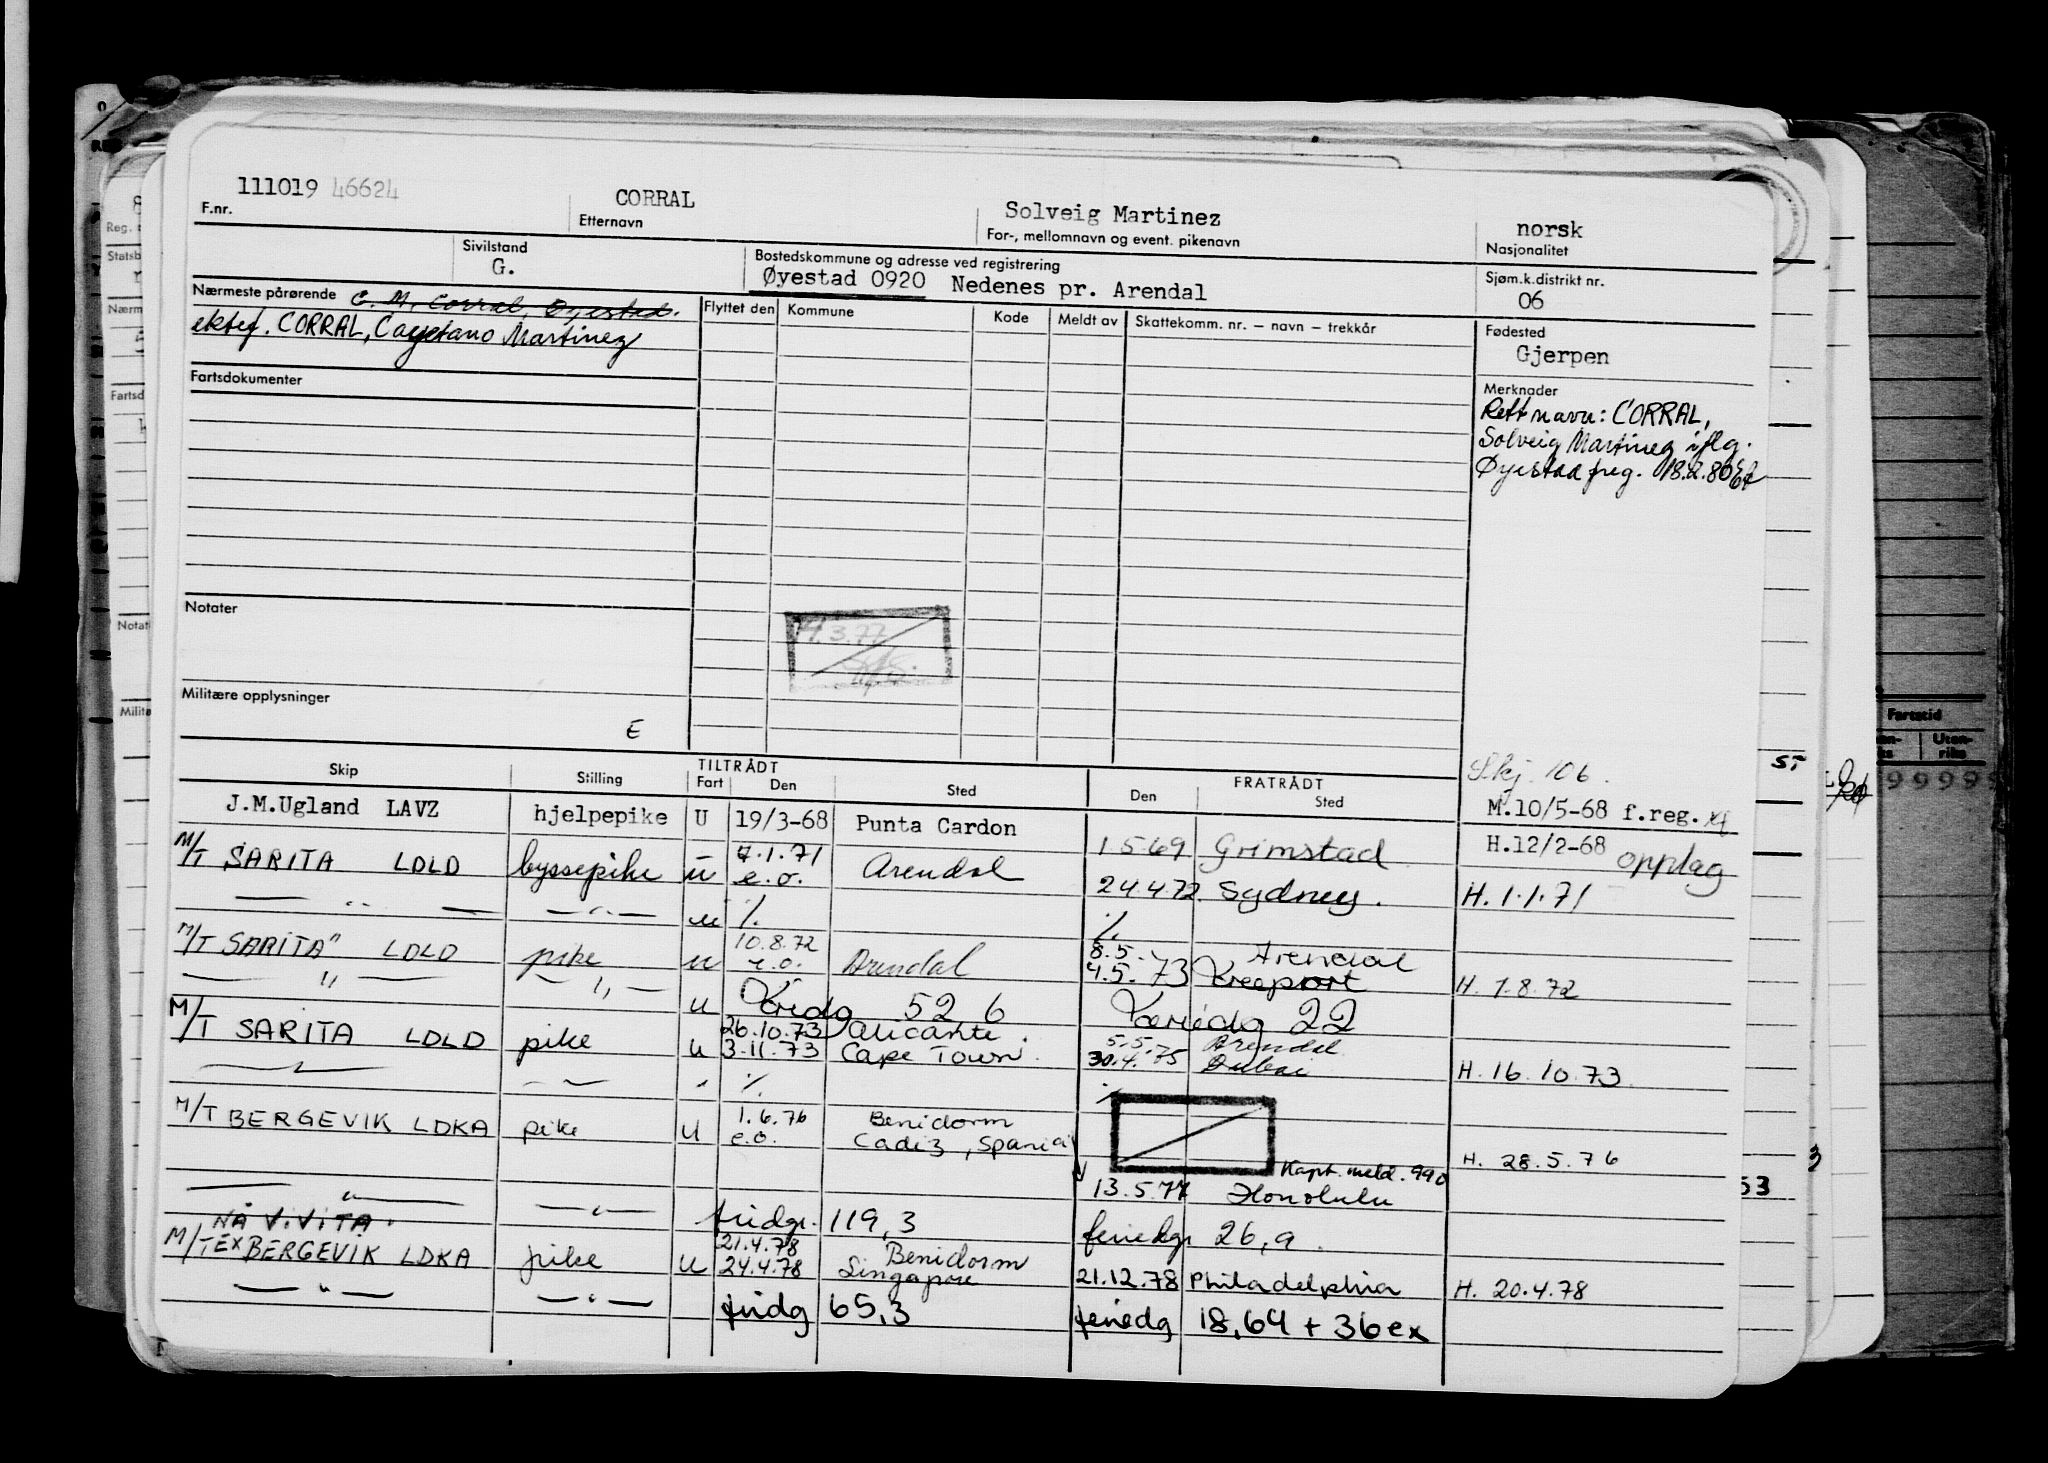 111019 46624
F.nr.
CORRAL
Etternavn
Solveig Martinez
For-, mellomnavn og event. pikenavn
norsk
Nasjonalitet
Sivilstand
G.
Bostedskommune og adresse ved registrering
Øyestad 0920 Nedenes pr. Arendal
Sjøm.k.distrikt nr.
06
Nærmeste pårørende C. M. Corral, Øyestad.
ektef. CORRAL, Cayetano Martinez
Flyttet den Kommune Kode Meldt av Skattekomm. nr. – navn – trekkår
Fødested
Gjerpen
Fartsdokumenter
Merknader
Rett navn: CORRAL,
Solveig Martinez iflg.
Øyestad freg. 18.2.80
Notater
19.3.77
Militære opplysninger
E
Skj. 106.
Skip Stilling TILTRÅDT Fart Den Sted FRATRÅDT Den Sted
J.M.Ugland LAVZ hjelpepike U 19/3-68 Punta Cardon 1 5 69 Grimstad M.10/5-68 f.reg.
H.12/2-68 opplag
M/T SARITA LDLD byssepike u 7.1.71 e.o. Arendal 24.4.72 Sydney. H. 1.1.71
— " — — " — u /. /.
M/T SARITA" LDLD pike u 10.8.72 e.o. Arendal 8.5. 4.5. 73 Arendal Freeport H. 1.8.72
— " — — " — u 52 6 22
M/T SARITA LDLD pike u 26.10.73 Alicante 3.11.73 Cape Town. 5.5. Arendal 30.4.75 Dubai H. 16.10.73
/. /.
M/T BERGEVIK LDKA pike u 1.6.76 e.o. Benidorm Cadiz, Spania H. 28.5.76
Kapt. meld. 990
— " — — " — 13.5.77 Honolulu
NÅ VIVITA fridgr. 119,3 feriedgr 26,9.
M/T EX BERGEVIK LDKA pike u 21.4.78 24.4.78 Benidorm Singapore 21.12.78 Philadelphia H. 20.4.78
— " — — " — fridg 65,3 feriedg 18,64 + 36 ex
Reg.
Statsb
Nærm
Fartsd
Notat
Milita
Fartstid
Uten-
riks
ST
53
3
9 9 9 9 9